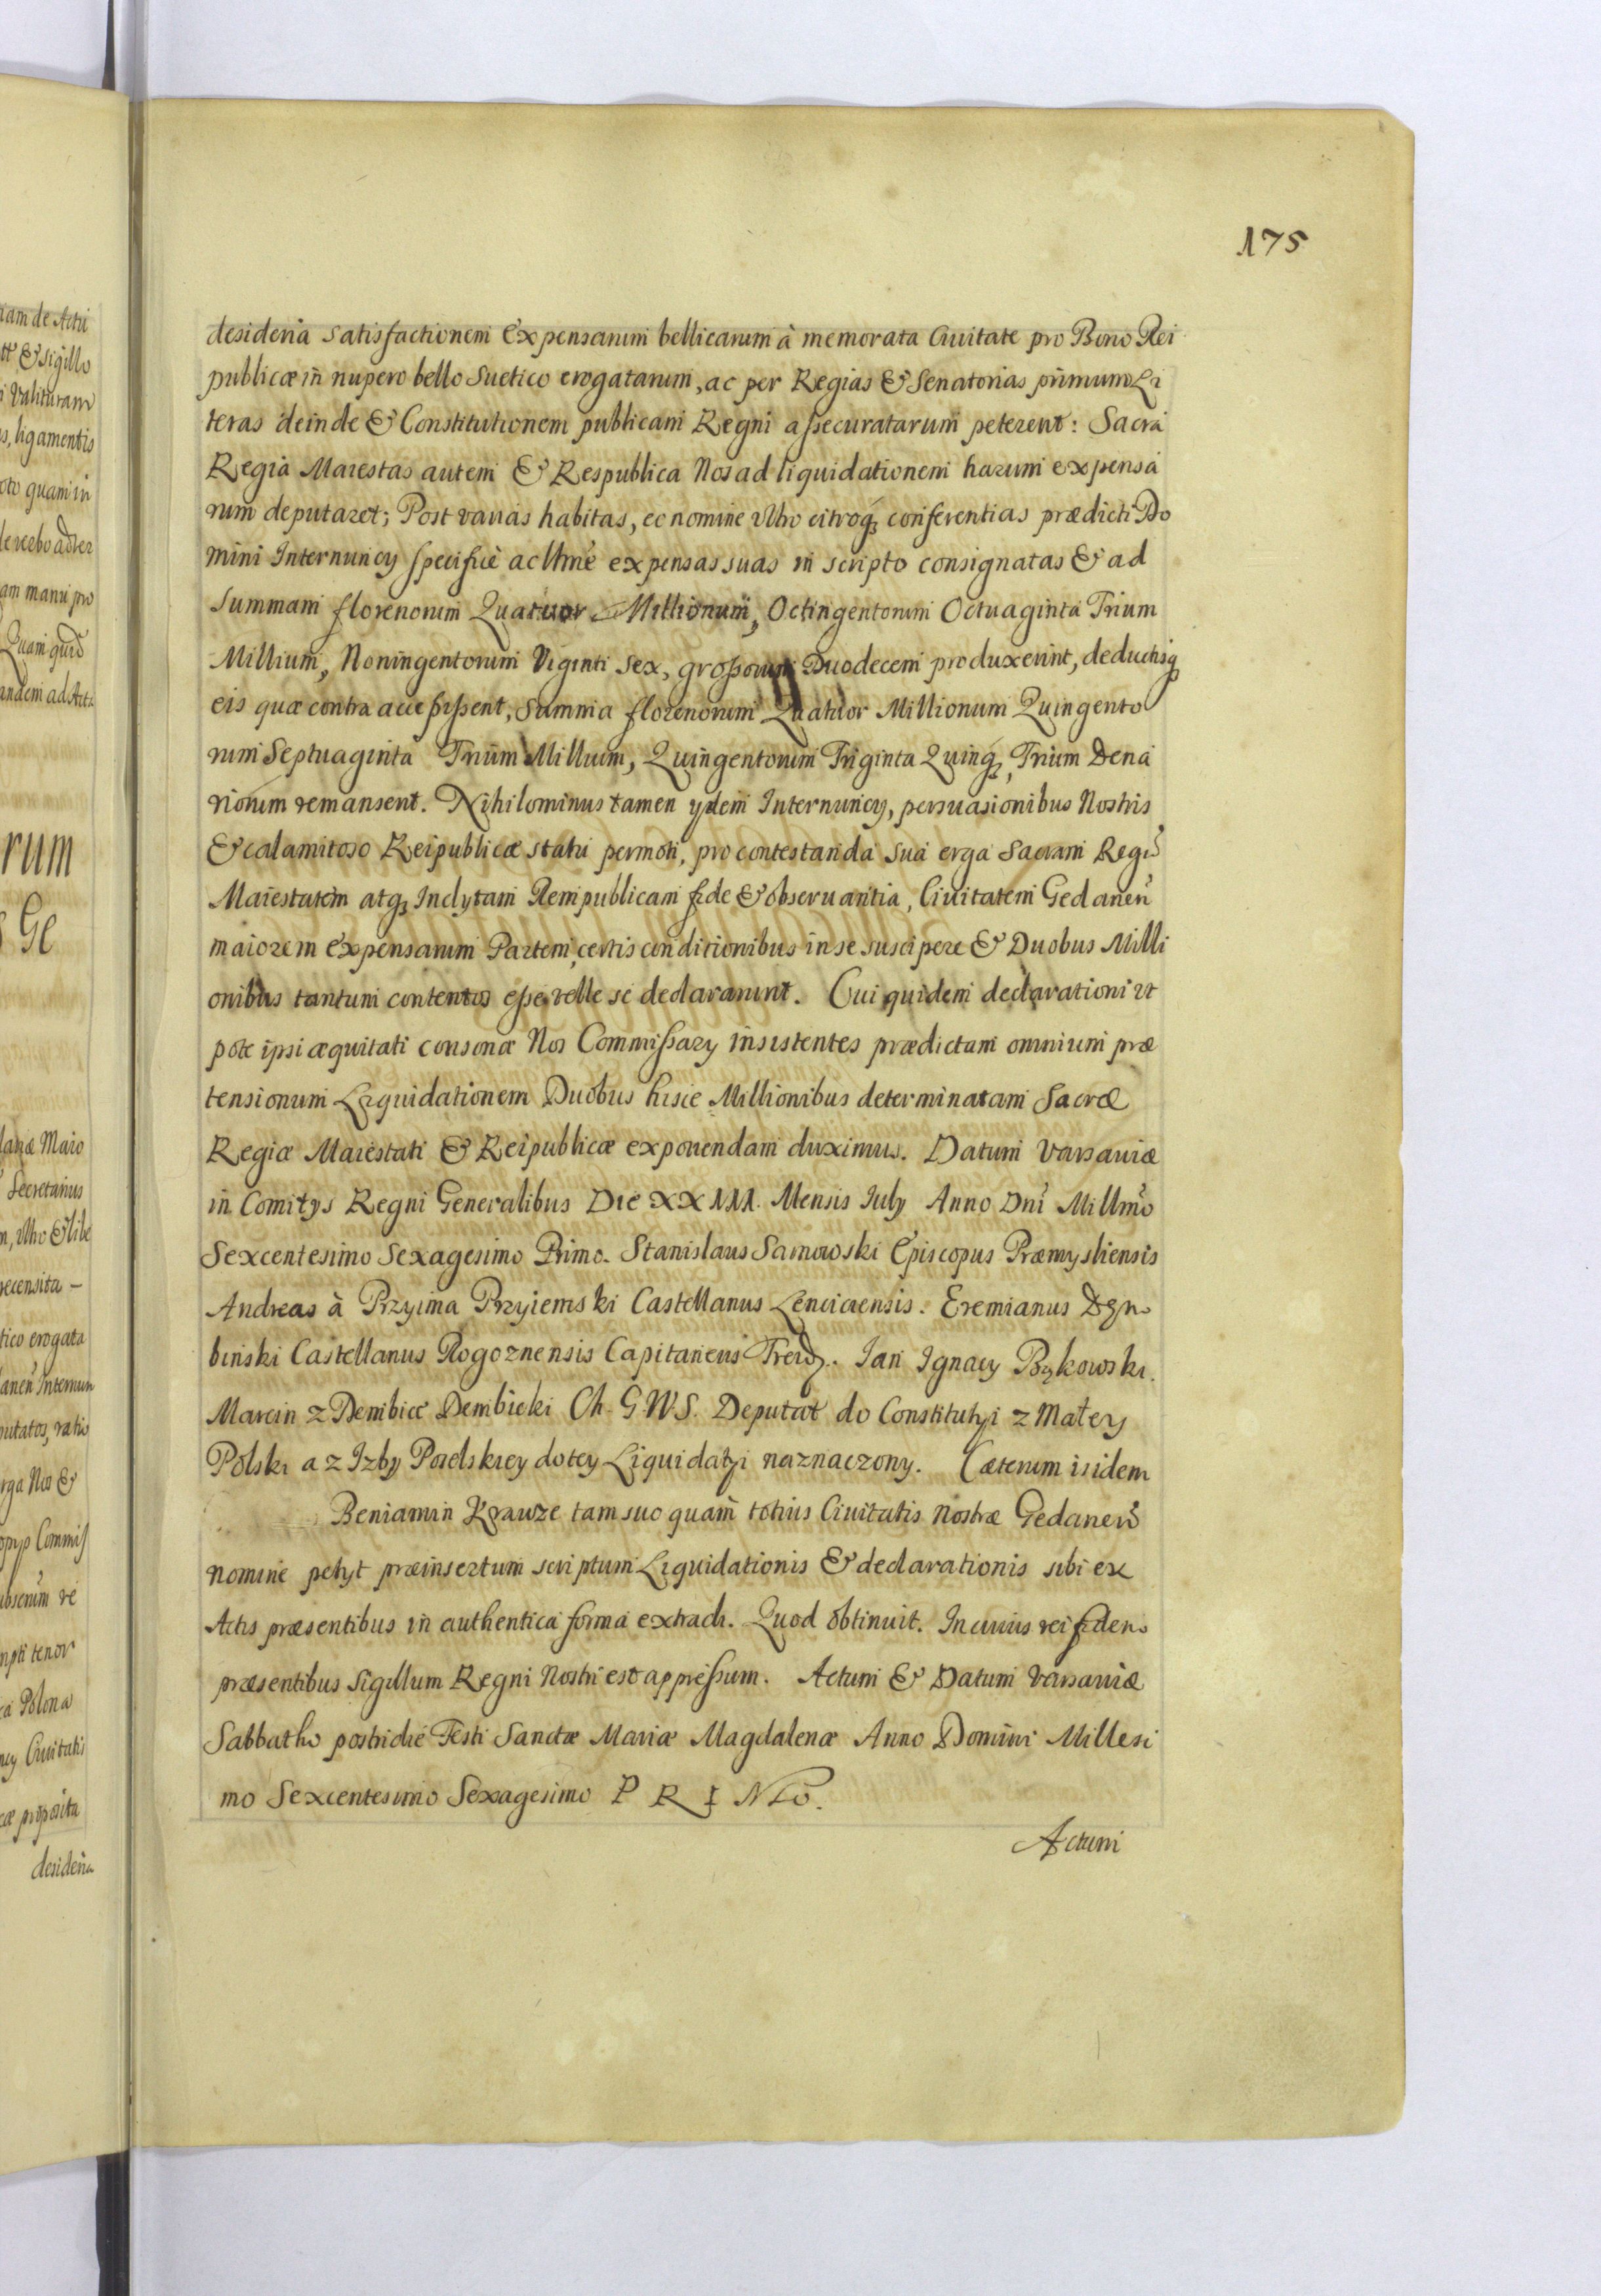 175
desideria satisfactionem Expensarum bellicarum à memorata Civitate pro Bono Rei
publicæ in nupero bello Suetico erogatarum, ac per Regias & Senatorias primum Li
teras deinde & Constitutionem publicam Regni assecuratarum peterent: Sacra
Regia Maiestas autem & Respublica Nos ad liquidationem harum expensa
rum deputaret; Post varias habitas, eo nomine ultro citroq₃ conferentias prædicti Do
mini Internuncy specifice ac llmẽ expensas suas in scripto consignatas & ad
summam florenorum Quatuor Millionum, Octingentorum Octuaginta Trium
Millium, Noningentorum Viginti sex, grossorum Duodecem produxerint, deductisq₃
eis quæ contra accessissent, summa florenorum Quatuor Millionum Quingento
rum Septuaginta Trium Millium, Quingentorum Triginta Quinq₃, Trium Dena
riorum remanserit. Nihilominus tamen ydem Internuncy, persuasionibus Nostris
& calamitoso Reipublicæ statu permoti, pro contestanda sua erga Sacram Regiã
Maiestatem atq₃ Inclytam Rempublicam fide & observantia, Civitatem Gedaneñ
maiorem Expensarum Partem, certis conditionibus in se suscipere & Duobus Milli
onibus tantum contentos esse velle se declararunt. Cui quidem declarationi ut
pote ipsi æquitati consonæ Nos Commissary insistentes prædictam omnium præ
tensionum Liquidationem Duobus hisce Millionibus determinatam Sacræ
Regiæ Maiestati & Reipublicæ exponendam duximus. Datum Varsaviæ
in Comitys Regni Generalibus Die XX Mensis July Anno Dni Millmo
Sexcentesimo Sexagesimo Primo. Stanislaus Sarnowski Episcopus Præmysliensis
Andreas à Przyima Przyiemski Castellanus Lenciciensis. Eremianus
Castellanus Rogoznensis Capitaneus Ian Ignacy Bąkowski.
Marcin z Dembice Dembicki Ch. G. W. S. Deputat do Constitutyi z Małey
Polski a z Izby Poselskiey do tey Liquidatyi naznaczony. Cæterum isidem
Beniamin Krauze tam suo quam totius Civitatis Nostræ Gedaneñ
nomine petyt præinsertum scriptum Liquidationis & declarationis sibi ex
Actis præsentibus in authentica forma extradi. Quod obtinuit. In cuius rei fidem
præsentibus Sigillum Regni Nostri est appressum. Actum & Datum Varsaviæ
Sabbatho postridie Festi Sanctæ Mariæ Magdalenæ Anno Domini Millesi
mo Sexcentesimo Sexagesimo P R I Mo.
Actum